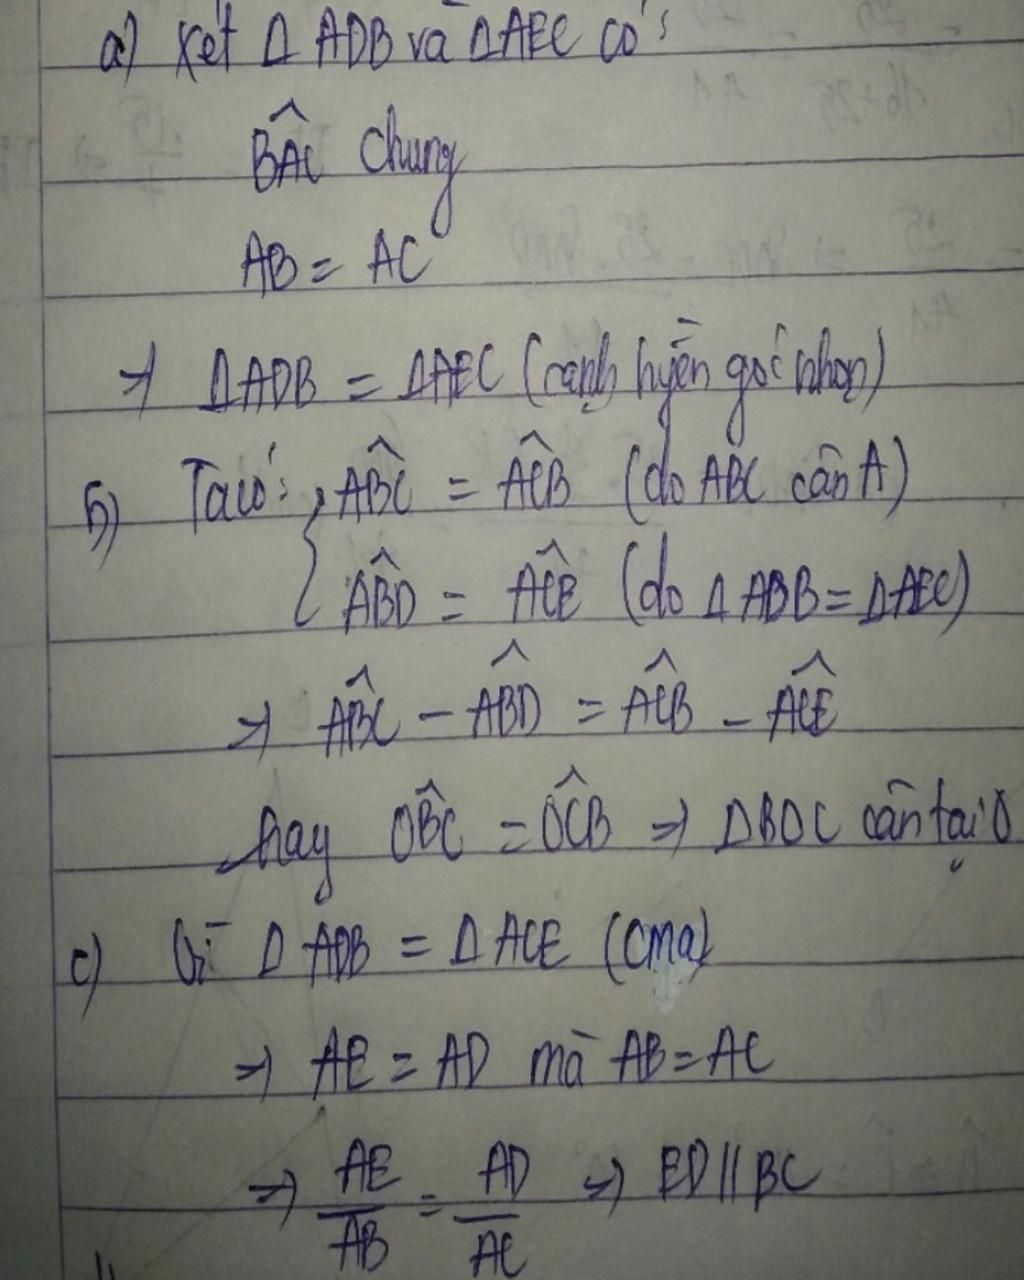 a) Xét Δ ADB và ΔAEC có:
BÂC chung
AB = AC
=> ΔADB = ΔAEC (cạnh huyền góc nhọn)
b) Ta có: { ABC^ = ACB^ (do ABC cân A)
ABD^ = ACE^ (do Δ ABB = ΔAEC)
=> ABC^ - ABD^ = ACB^ - ACE^
hay OBC^ = OCB^ => ΔBOC cân tại O
c) Vì Δ ADB = Δ ACE (cma)
=> AE = AD mà AB = AC
=> AE/AB = AD/AC => ED // BC